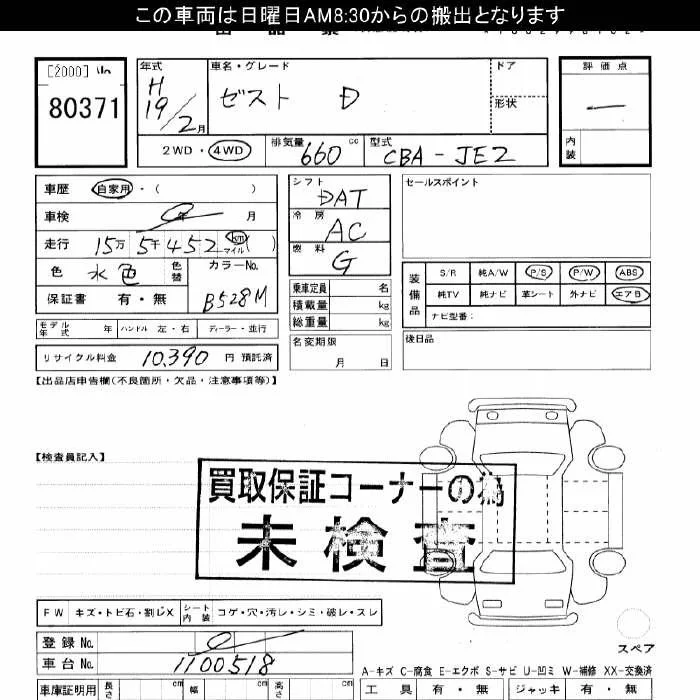 この車両は日曜日AM8:30からの搬出となります
[2000]
80371
年式 車名・グレード ドア 評価点
H 19/2月 ゼスト D 形状 —
2WD・4WD 排気量 660 cc 型式 CBA-JE2 内装
車歴 自家用・( ) シフト DAT セールスポイント
車検 0年 月 冷房 AC
走行 15万5千452 km マイル ( ) 燃料 G
色 水色 色替 カラーNo. B528M
保証書 有・無
乗車定員 名
積載量 kg
総重量 kg
装備品 S/R 純A/W P/S P/W ABS
純TV 純ナビ 革シート 外ナビ エアB
ナビ型番:
モデル年式 年 ハンドル 左・右 ディーラー・並行
名変期限 月 日 後日品
リサイクル料金 10,390 円 預託済
【出品店申告欄(不良箇所・欠品・注意事項等)】
【検査員記入】
買取保証コーナーの為
未検査
FW キズ・トビ石・割レX シート内装 コゲ・穴・汚レ・シミ・破レ・スレ
登録No. 0
車台No. 1100518
スペア
A-キズ C-腐食 E-エクボ S-サビ U-凹ミ W-補修 XX-交換済
車庫証明用 長さ cm 幅 cm 高さ cm 工具 有・無 ジャッキ 有・無